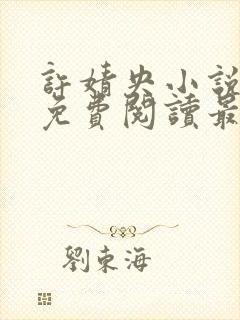 許婧央小說
免費閱讀最
劉東海